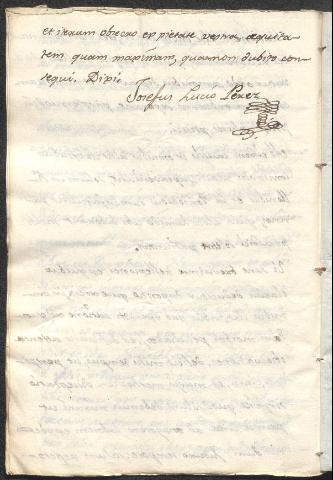 et iterum obsecro ex pietate vestra, æquita-
tem quam maximam, quam non dubito con-
sequi. Dixi
Josefus Lucio Perez